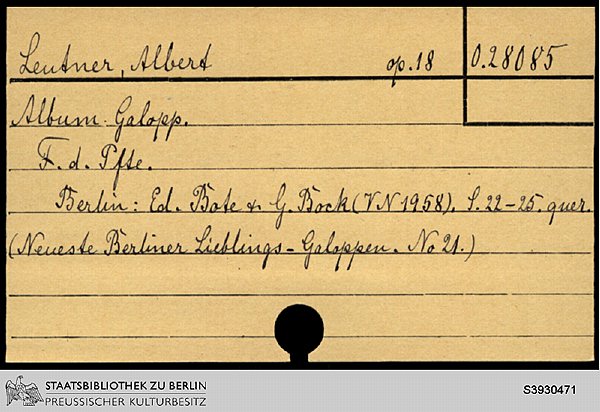 Leutner, Albert op. 18 O.28085
Album-Galopp.
F. d. Pfte.
Berlin: Ed. Bote & G. Bock (VN 1958). S. 22-25. quer.
(Neueste Berliner Lieblings-Galoppen. No 21.)
STAATSBIBLIOTHEK ZU BERLIN
PREUSSISCHER KULTURBESITZ
S3930471